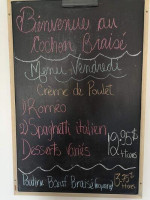 Bienvenue au
Cochon Braisé
Menu Vendredi
Crème de Poulet
1) Romeo
2) Spaghetti italien
Desserts variés
19,95$
+ taxes
Poutine Boeuf Braisé
+ taxes